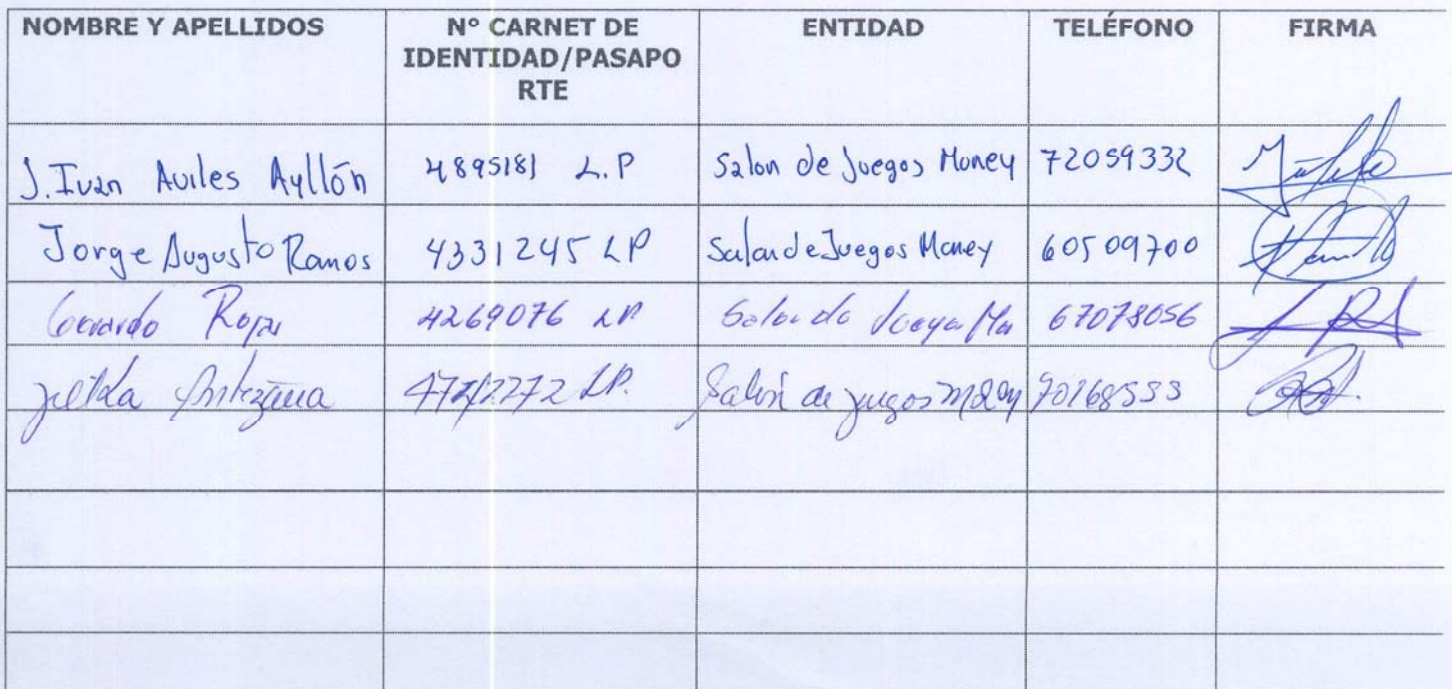 NOMBRE Y APELLIDOS N° CARNET DE IDENTIDAD/PASAPO RTE ENTIDAD TELÉFONO FIRMA
J. Ivan Aviles Ayllón 4895181 L.P Salon de Juegos Money 72059332
Jorge Augusto Ramos 4331245 LP Salon de Juegos Money 60509700
Gerardo Rojas 4269076 LP Salon de 67078056
Antezana LP. Salón de juegos 70168533